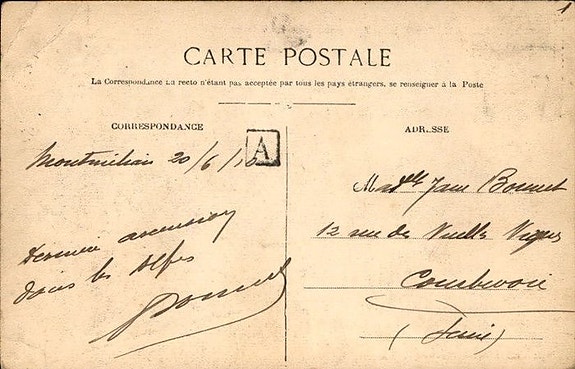 1
CARTE POSTALE
La Correspondance au recto n'étant pas acceptée par tous les pays étrangers, se renseigner à la Poste
CORRESPONDANCE
Montmélian 20/6/10
A
Dernière ascension
dans les Alpes
Bonnet
ADRESSE
Madlle Jane Bonnet
12 rue de Vieilles Vignes
Courbevoie
(Seine)